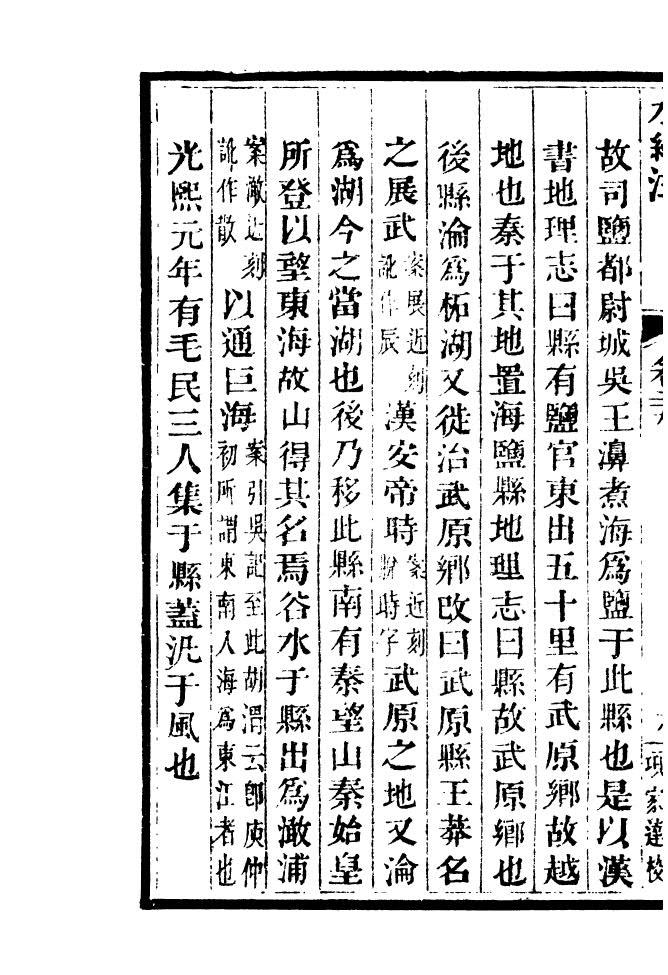 水經注
項家達校
故司鹽都尉城吳王濞煮海爲鹽于此縣也是以漢
書地理志曰縣有鹽官東出五十里有武原鄉故越
地也秦于其地置海鹽縣地理志曰縣故武原鄉也
後縣淪爲柘湖又徙治武原鄉改曰武原縣王莽名
之展武案展近刻訛作辰漢安帝時案近刻脫時字武原之地又淪
爲湖今之當湖也後乃移此縣南有秦望山秦始皇
所登以望東海故山得其名焉谷水于縣出爲澉浦
案澉近刻訛作散以通巨海案引吳記至此胡渭云卽庾仲初所謂東南入海爲東江者也
光熙元年有毛民三人集于縣蓋汎于風也